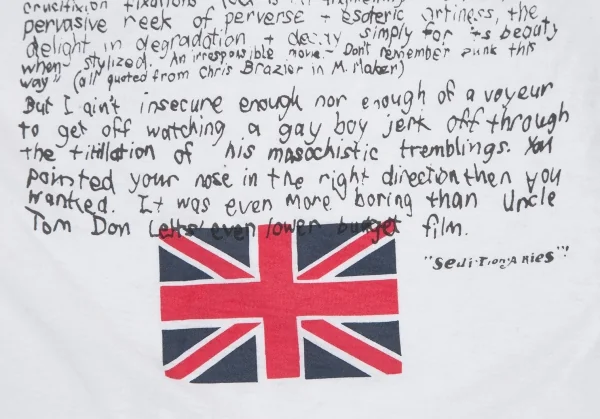 pervasive reek of perverse + esoteric artiness, the
delight in degradation + decay simply for its beauty
when stylized. An irresponsible movie. Don't remember punk this
way" (all quoted from Chris Brazier in M. Maker)
But I ain't insecure enough nor enough of a voyeur
to get off watching a gay boy jerk off through
the titillation of his masochistic tremblings. You
pointed your nose in the right direction then you
wanked. It was even more boring than Uncle
Tom Don Letts' even lower budget film.
"SediTionARies"!